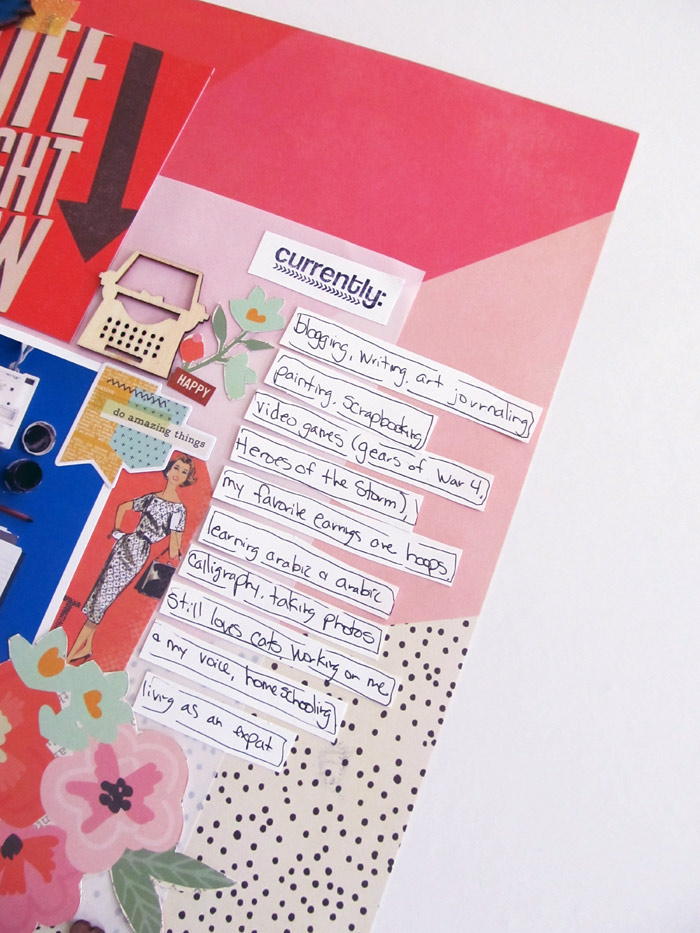 IFE
GHT
W
currently:
HAPPY
do amazing things
blogging, writing, art journaling
painting, scrapbooking
video games (gears of war 4,
Heroes of the Storm),
my favorite earrings are hoops
learning arabic & arabic
calligraphy, taking photos
still loves cats, working on me
& my voice, homeschooling
living as an expat